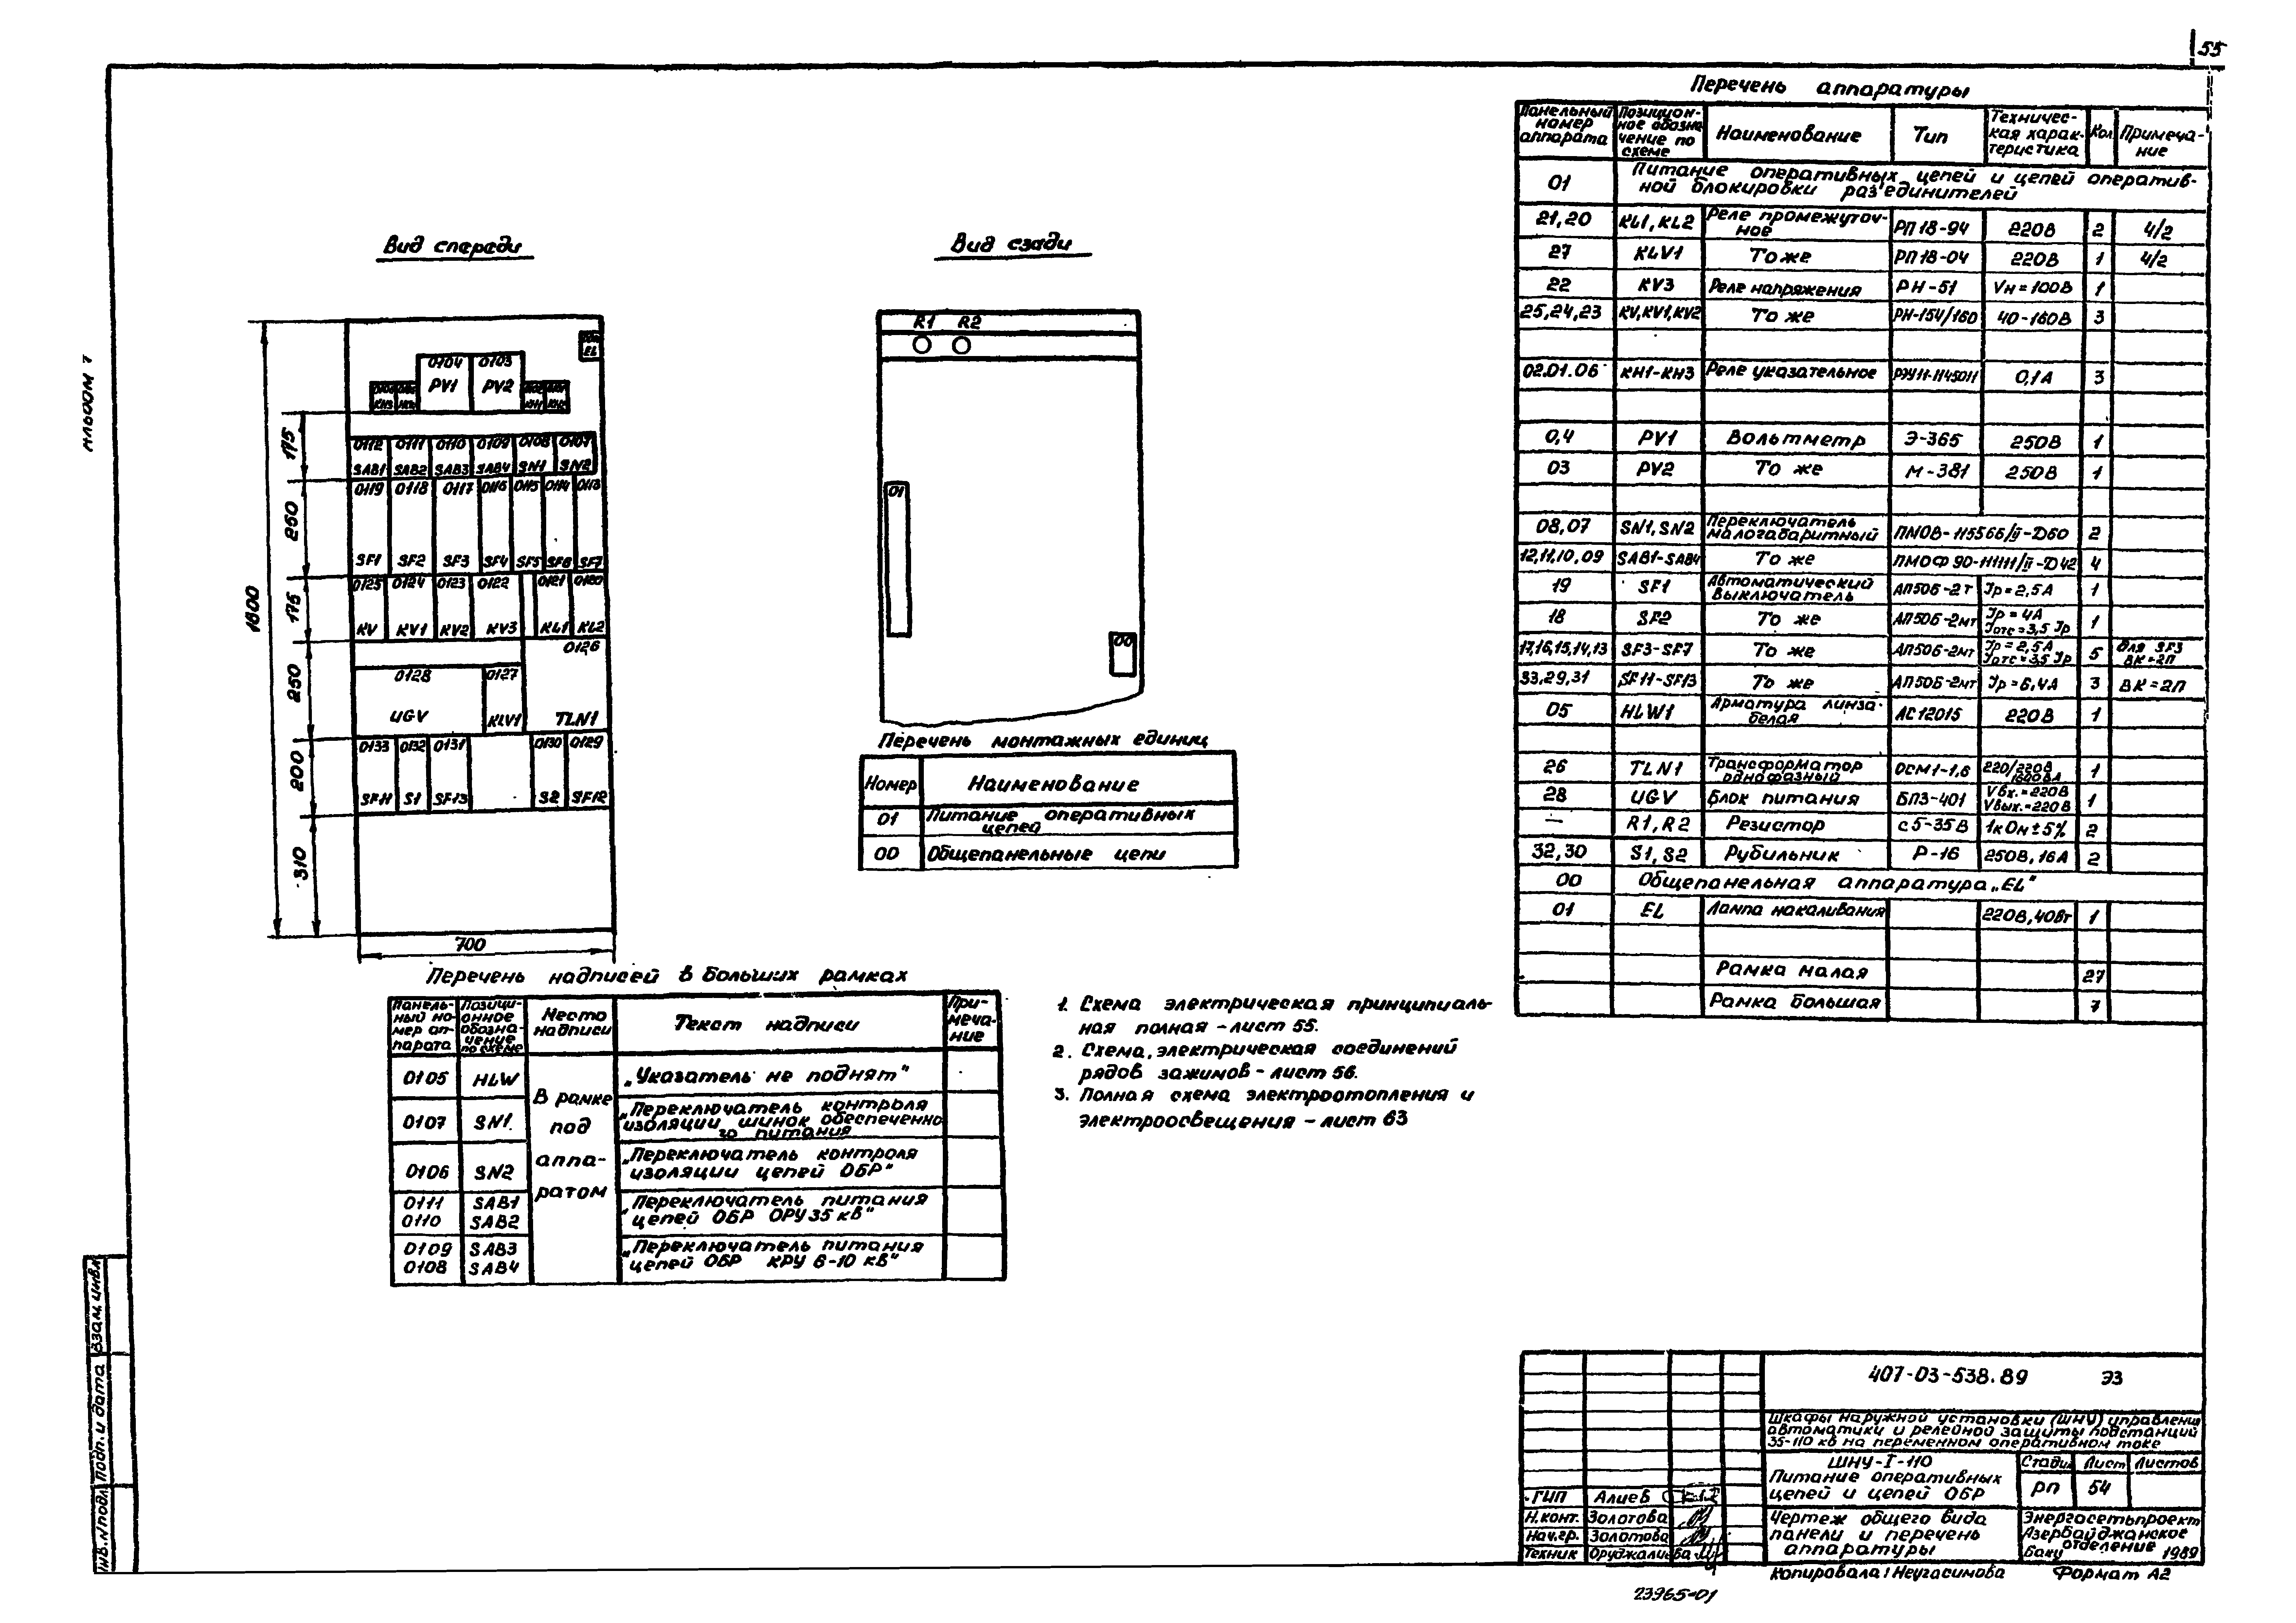 55
Альбом 1
Вид спереди
0104 0103
PV1 PV2
EL
KH3
KH1 KH2
0112 0111 0110 0109 0108 0107
SAB1 SAB2 SAB3 SAB4 SN1 SN2
0119 0118 0117 0116 0115 0114 0113
SF1 SF2 SF3 SF4 SF5 SF6 SF7
0125 0124 0123 0122 0121 0120
KV KV1 KV2 KV3 KL1 KL2
0126
0128 0127
UGV KLV1 TLN1
0133 0132 0131 0130 0129
SF11 S1 SF13 S2 SF12
1800
175
260
175
250
200
310
700
Вид сзади
R1 R2
01
00
Перечень монтажных единиц
Номер Наименование
01 Питание оперативных цепей
00 Общепанельные цепи
Перечень надписей в больших рамках
Панельный номер аппарата Позиционное обозначение по схеме Место надписи Текст надписи Примечание
0105 HLW „Указатель не поднят"
В рамке под аппаратом
0107 SN1 „Переключатель контроля изоляции шинок обеспеченного питания
0106 SN2 „Переключатель контроля изоляции цепей ОБР"
0111 SAB1 „Переключатель питания
0110 SAB2 цепей ОБР ОРУ 35 кВ"
0109 SAB3 „Переключатель питания
0108 SAB4 цепей ОБР КРУ 6-10 кВ"
1. Схема электрическая принципиаль-
ная полная - лист 55.
2. Схема, электрическая соединений
рядов зажимов - лист 56.
3. Полная схема электроотопления и
электроосвещения - лист 63
Перечень аппаратуры
Панельный номер аппарата Позиционное обозначение по схеме Наименование Тип Техническая характеристика Кол Примечание
01 Питание оперативных цепей и цепей оператив-
ной блокировки раз'единителей
21,20 KL1, KL2 Реле промежуточное РП18-94 220В 2 4/2
27 KLV1 То же РП18-04 220В 1 4/2
22 KV3 Реле напряжения РН-51 Vн=100В 1
25,24,23 KV,KV1,KV2 То же РН-154/160 40-160В 3
02.01.06 KH1-KH3 Реле указательное РЭУ11-1145011 0,1А 3
0,4 PV1 Вольтметр Э-365 250В 1
03 PV2 То же М-381 250В 1
08,07 SN1, SN2 Переключатель малогабаритный ПМОВ-115566/II-Д60 2
12,11,10,09 SAB1-SAB4 То же ПМОФ 90-111111/II-Д42 4
19 SF1 Автоматический выключатель АП50Б-2Т Jр=2,5А 1
18 SF2 То же АП50Б-2МТ Jр=4А Jотс=3,5 Jр 1
17,16,15,14,13 SF3-SF7 То же АП50Б-2МТ Jр=2,5А Jотс=3,5 Jр 5 Для SF3 ВК=2П
33,29,31 SF11-SF13 То же АП50Б-2МТ Jр=6,4А 3 ВК=2П
05 HLW1 Арматура линза-белая АС12015 220В 1
26 TLN1 Трансформатор однофазный ОСМ1-1,6 220/220В 1600ВА 1
28 UGV Блок питания БПЗ-401 Vвх.=220В Vвых.=220В 1
— R1, R2 Резистор С5-35В 1кОм±5% 2
32,30 S1, S2 Рубильник Р-16 250В, 16А 2
00 Общепанельная аппаратура „EL"
01 EL Лампа накаливания 220В, 40Вт 1
Рамка малая 27
Рамка большая 7
407-03-538.89 ЭЗ
Шкафы наружной установки (ШНУ) управления
автоматики и релейной защиты подстанций
35-110 кВ на переменном оперативном токе
ШНУ-I-110
Питание оперативных
цепей и цепей ОБР
Стадия Лист Листов
РП 54
Чертеж общего вида
панели и перечень
аппаратуры
Энергосетьпроект
Азербайджанское
отделение
Баку 1989
ГИП Алиев
Н.конт. Золотова
Нач.гр. Золотова
Техник Оруджалиева
Копировала: Неугасимова Формат А2
23965-01
Взам. инв.
Подп. и дата
Инв. N подл